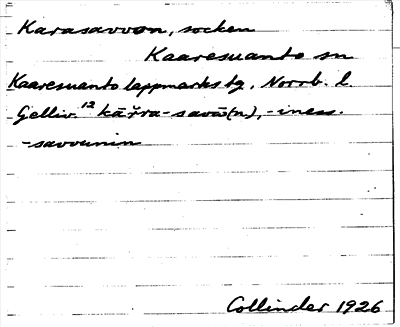 Karasavvon, socken
Kaaresuanto sn
Kaaresuanto lappmarks tg, Norrb. l.
Gelliv. 12 kāřra-savō(n), -iness.
-savvunin
Collinder 1926